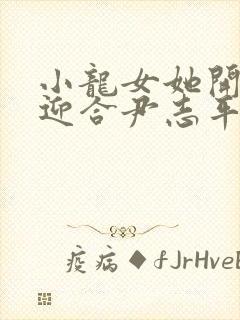 小龍女她開
迎合尹志平
疫病◆fJrHveE